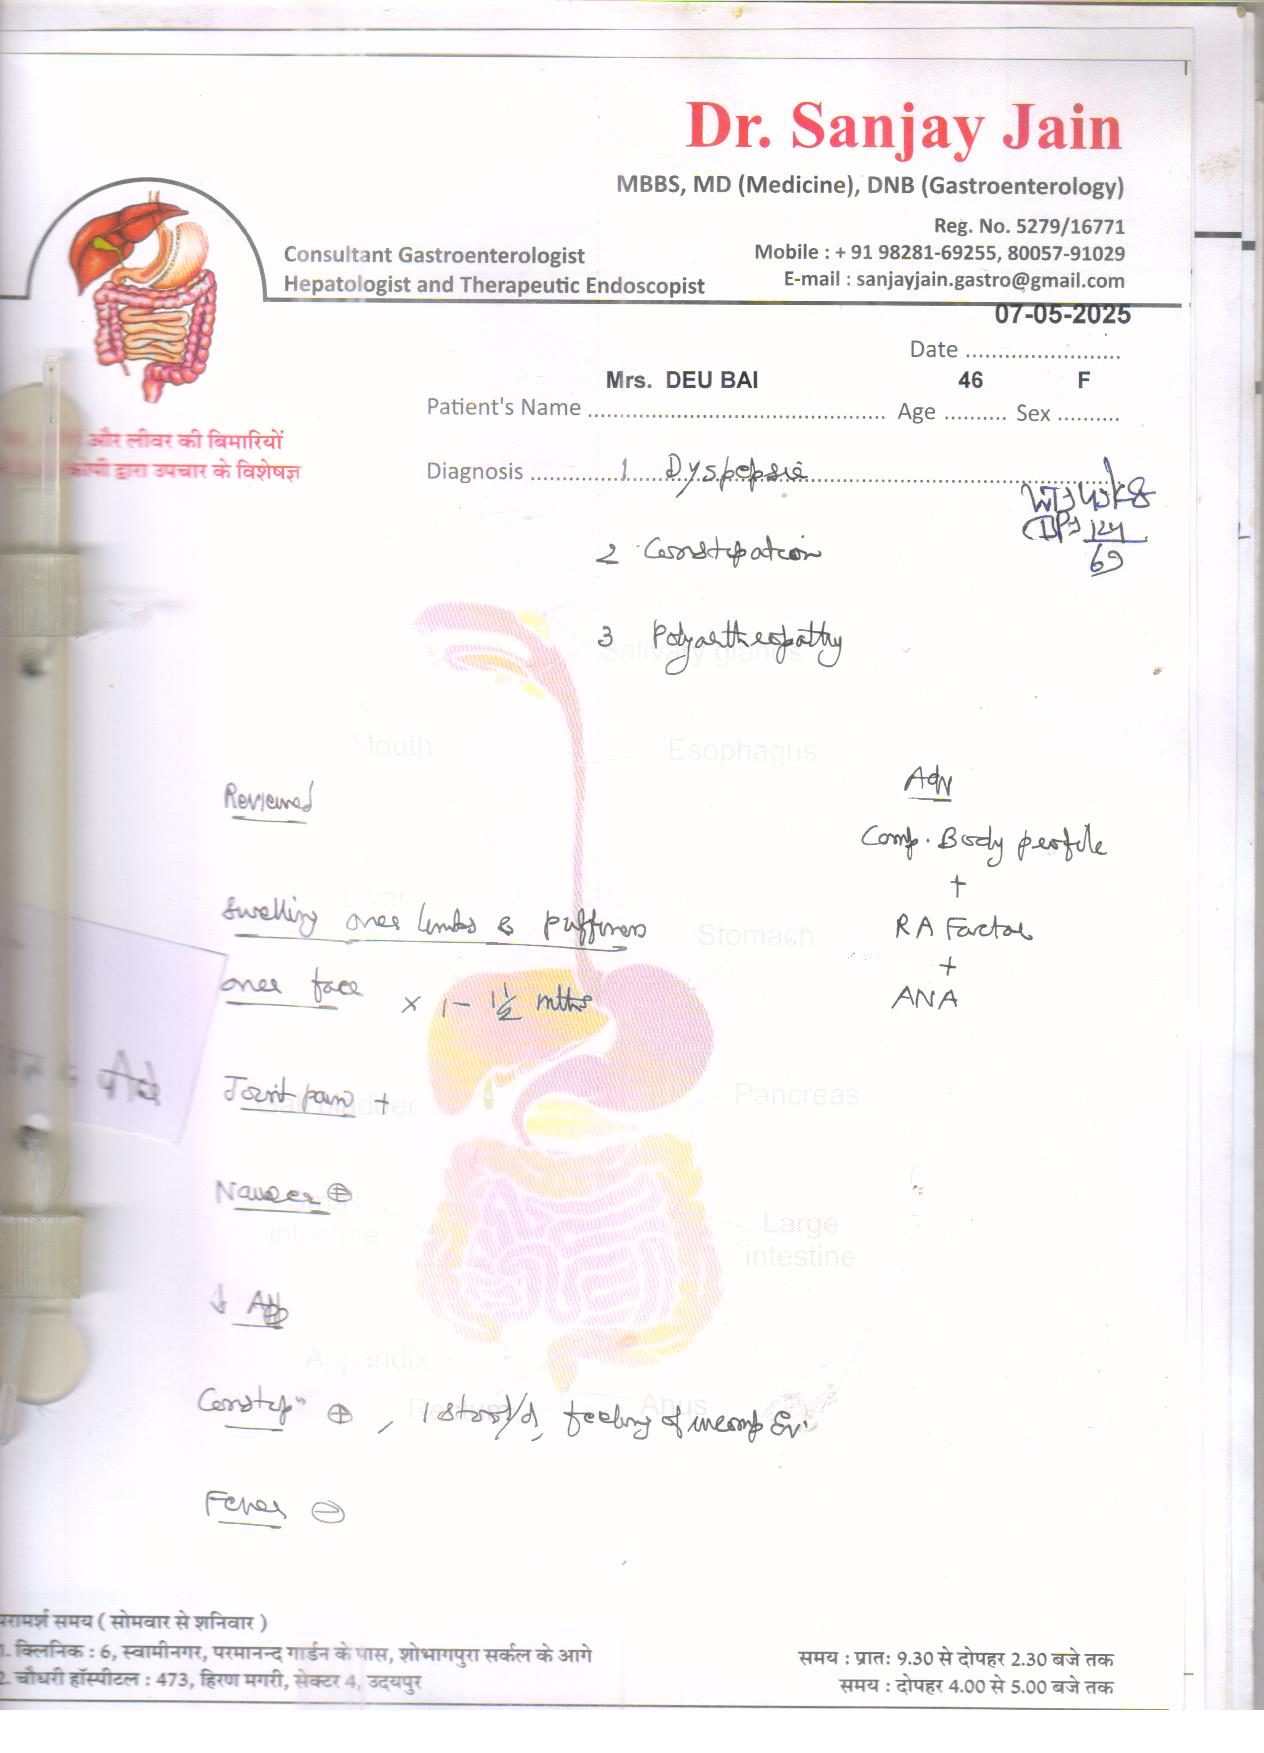 Dr. Sanjay Jain
MBBS, MD (Medicine), DNB (Gastroenterology)
Reg. No. 5279/16771
Consultant Gastroenterologist
Mobile : + 91 98281-69255, 80057-91029
Hepatologist and Therapeutic Endoscopist
E-mail : sanjayjain.gastro@gmail.com
07-05-2025
Date ........................
Mrs. DEU BAI 46 F
Patient's Name ............................................. Age .......... Sex ..........
और लीवर की बिमारियों
द्वारा उपचार के विशेषज्ञ
Diagnosis 1 Dyspepsia
BP 124/69
2 Constipation
3 Polyarthropathy
Salivary glands
Mouth
Esophagus
Reviewed
Adv
Comp. Body profile
+
Liver
Swelling over limbs & puffiness
RA Factor
Stomach
+
over face x 1 - 1½ mths
ANA
Joint pain +
Pancreas
Nausea ⊕
intestine
Large
intestine
↓ App
Appendix
Anus
Constipn ⊕, 1 stool/d, feeling of incomp Ev.
Fever ⊖
परामर्श समय ( सोमवार से शनिवार )
1. क्लिनिक : 6, स्वामीनगर, परमानन्द गार्डन के पास, शोभागपुरा सर्कल के आगे
समय : प्रातः 9.30 से दोपहर 2.30 बजे तक
2. चौधरी हॉस्पीटल : 473, हिरण मगरी, सेक्टर 4, उदयपुर
समय : दोपहर 4.00 से 5.00 बजे तक